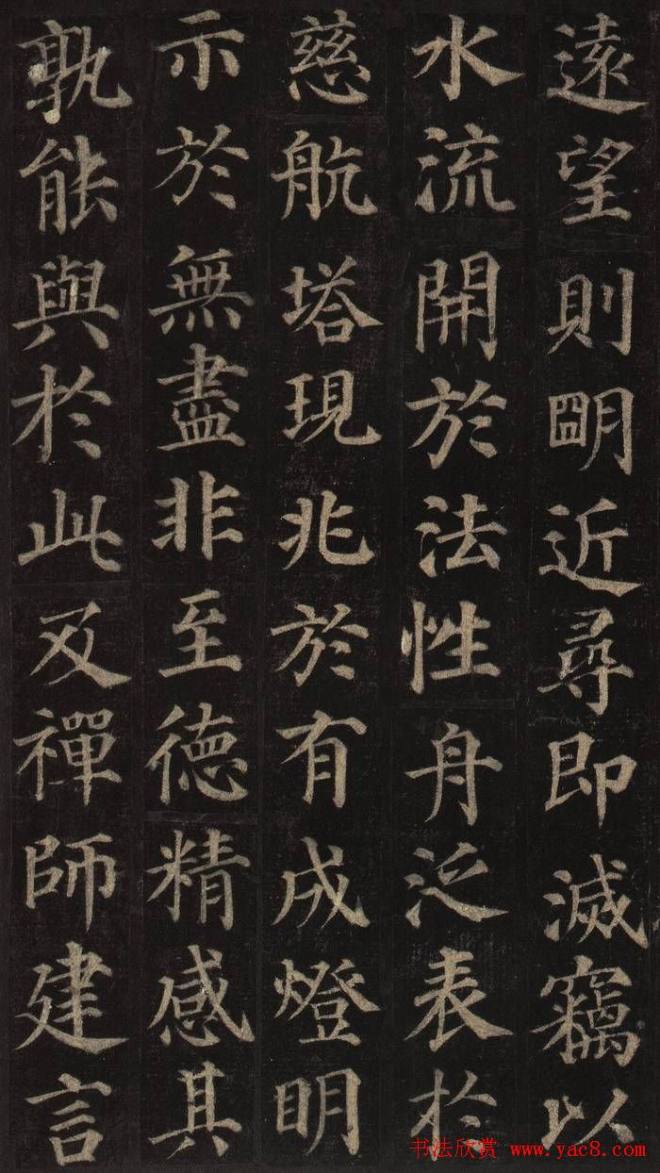 遠望則朙近尋即滅竊以
水流開於法性舟泛表於
慈航塔現兆於有成燈明
示於無盡非至德精感其
孰能與於此及禪師建言
书法欣赏 www.yac8.com